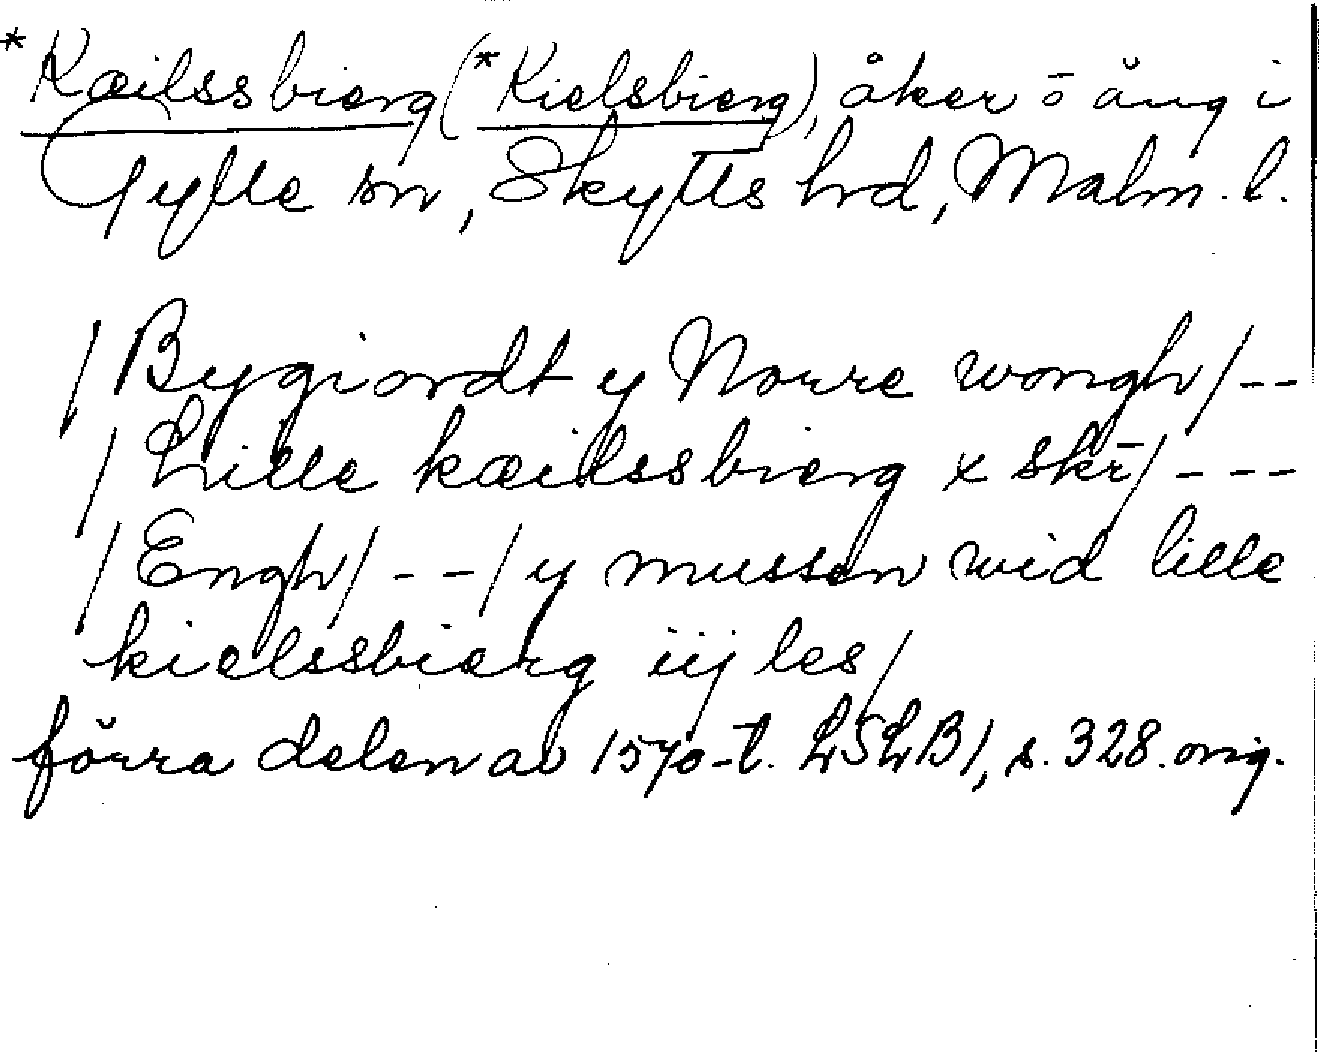 *Kæilssbierg (*Kielsbierg), åker o äng i
Gylle sn, Skytts hd, Malm. l.
/Bygiordt y Norre wongh/--
/Lille kæilssbierg x skr/---
/Engh/--/y mussen wid lille
kielssbierg iij les/
förra delen av 1570-t. LSLB1, s. 328. orig.